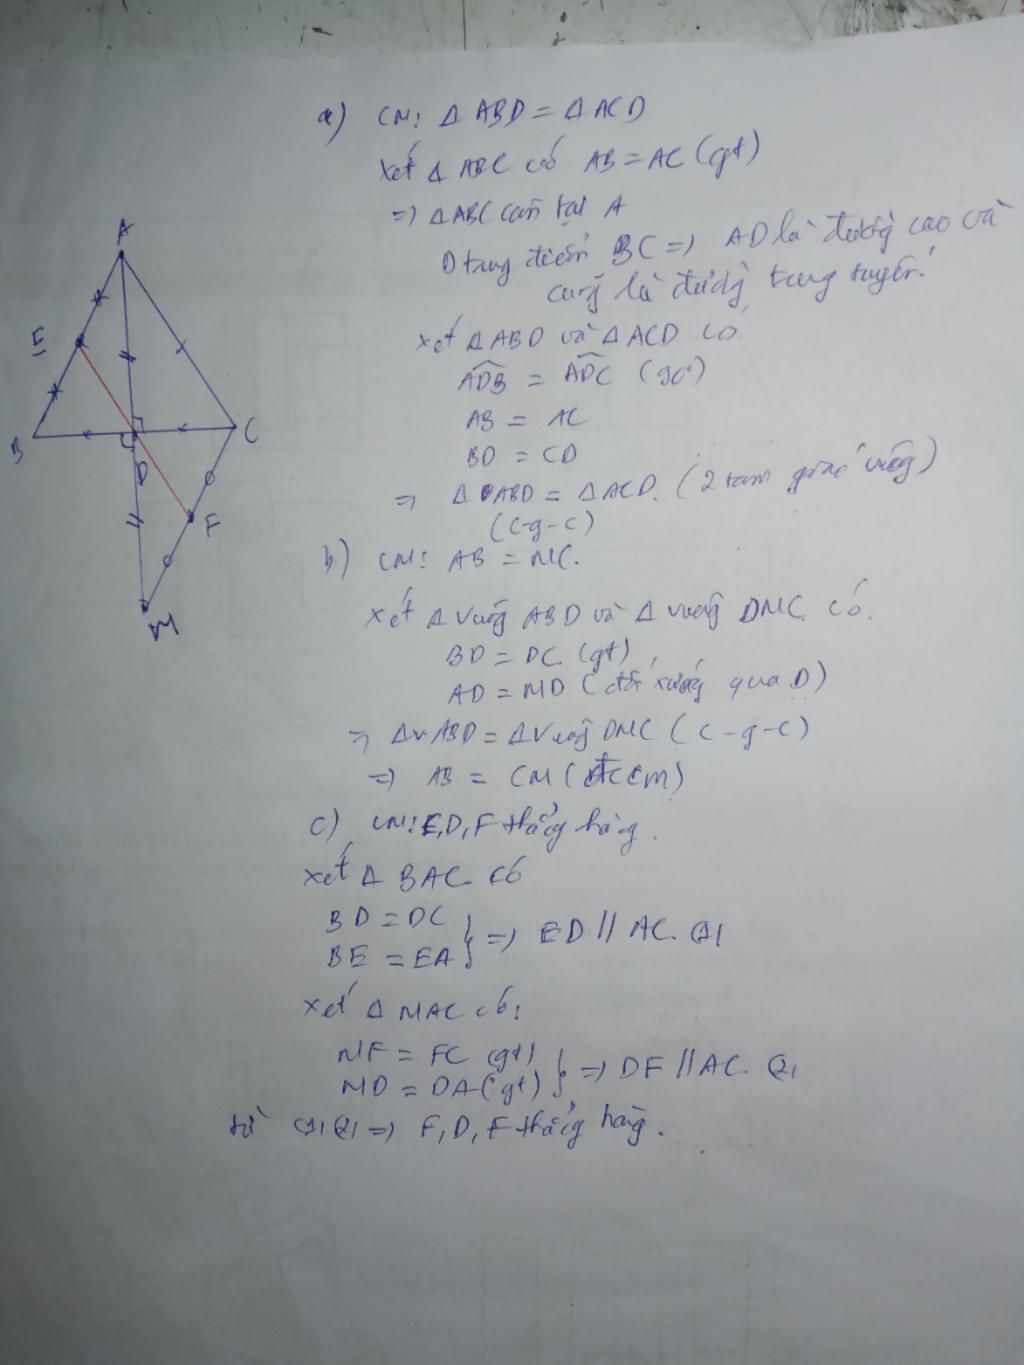 a) CM: Δ ABD = Δ ACD
xét Δ ABC có AB = AC (gt)
=> ΔABC cân tại A
D trung điểm BC => AD là đường cao và
cũng là đường trung tuyến.
xét ΔABD và ΔACD có
ADB = ADC (90°)
AB = AC
BD = CD
=> Δ ABD = ΔACD. (2 tam giác vuông)
(c-g-c)
b) CM: AB = MC.
xét Δ vuông ABD và Δ vuông DMC có.
BD = DC (gt)
AD = MD (đối xứng qua D)
=> ΔvABD = ΔVuông DMC (c-g-c)
=> AB = CM (đccm)
c) CM: E, D, F thẳng hàng.
xét Δ BAC có
BD = DC
BE = EA } => ED // AC (1)
xét Δ MAC có:
MF = FC (gt)
MD = DA (gt) } => DF // AC (2)
từ (1) (2) => F, D, F thẳng hàng.
A
E
B
C
D
F
M